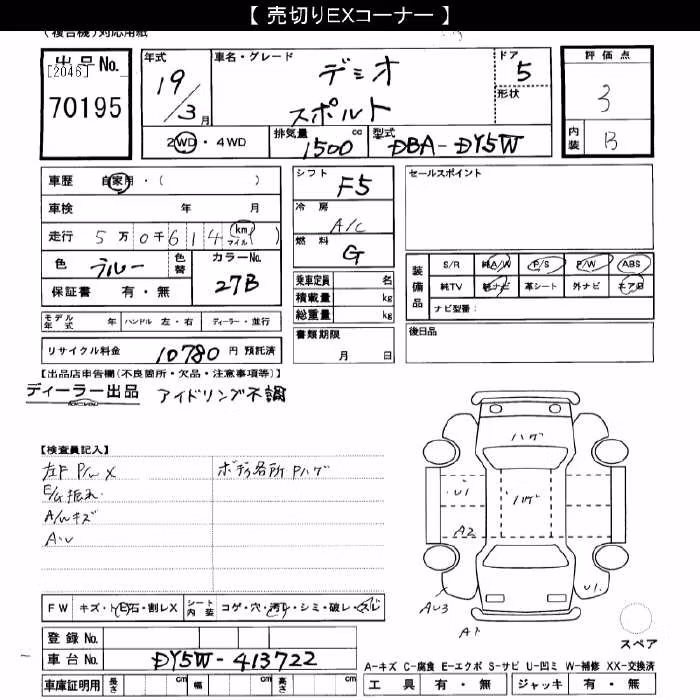 【 売切りEXコーナー 】
(複合機)対応用紙
出品No.
[2046]
70195
年式
19/3月
車名・グレード
デミオ
スポルト
ドア
5
形状
評価点
3
内装
B
2WD・4WD
排気量
1500 cc
型式
DBA-DY5W
車歴 自家用・( )
車検 年 月
走行 5万0千614 km マイル ( )
色
ブルー
色替
カラーNo.
27B
保証書 有・無
モデル年式 年 ハンドル 左・右 ディーラー・並行
リサイクル料金 10780 円 預託済
シフト
F5
冷房
A/C
燃料
G
乗車定員 名
積載量 kg
総重量 kg
書類期限
月 日
セールスポイント
装備品
S/R 純A/W P/S P/W ABS
純TV 純ナビ 革シート 外ナビ エアB
ナビ型番:
後日品
【出品店申告欄(不良箇所・欠品・注意事項等)】
ディーラー出品 アイドリング不調
【検査員記入】
左F P/W X
E/G振れ
A/Wキズ
A・U
ボディ各所 Pハゲ
ハゲ
ハゲ
U1
A2
AU3
A1
U1.
スペア
FW キズ・ト石・割レX
シート内装 コゲ・穴・汚レ・シミ・破レ・スレ
登録No.
車台No. DY5W-413722
車庫証明用 長さ cm 幅 cm 高さ cm
A-キズ C-腐食 E-エクボ S-サビ U-凹ミ W-補修 XX-交換済
工具 有・無 ジャッキ 有・無